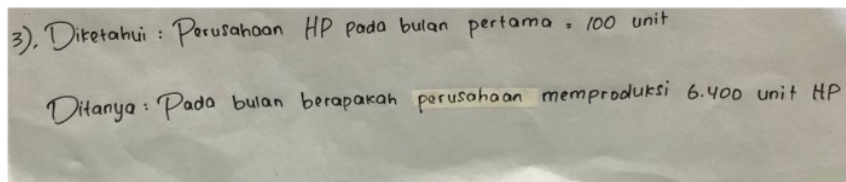 3). Diketahui : Perusahaan HP Pada bulan pertama = 100 unit
Ditanya : Pada bulan berapakah perusahaan memproduksi 6.400 unit HP